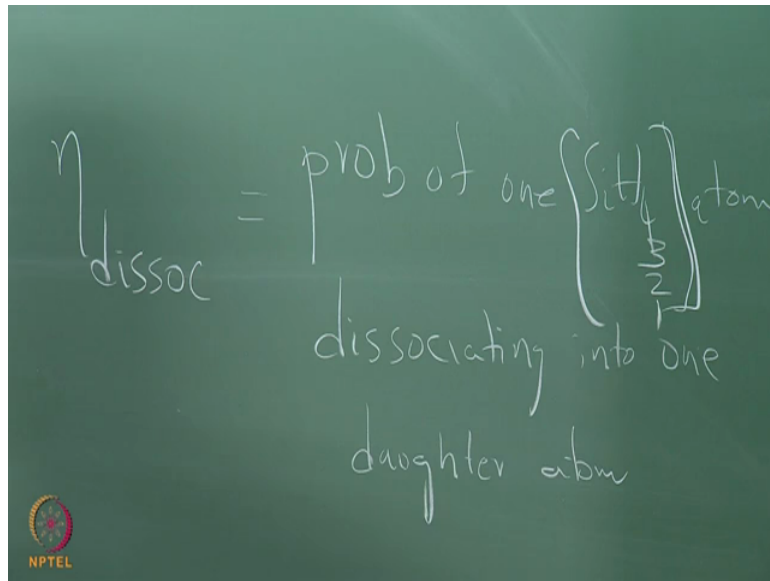 η dissoc = prob of one [SiH4 3 2 1] atom
dissociating into one
daughter atom
NPTEL